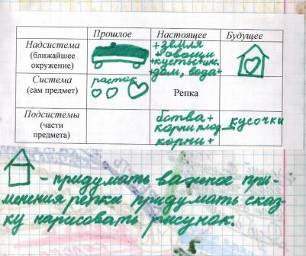 Прошлое Настоящее Будущее
Надсистема
(ближайшее
окружение)
+ земля
+ овощи
+ кусты+
+ дом, вода+
Система
(сам предмет)
росток
Репка
Подсистемы
(части
предмета)
ботва+
корни+
кусочки
- придумать важное при-
менения репки придумать сказ-
ку нарисовать рисунок.